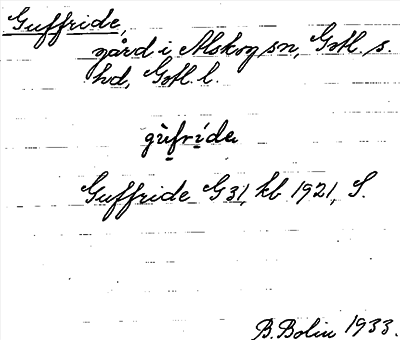 Guffride,
gård i Alskog sn, Gotl. s.
hd, Gotl. l.
gùfrída
Guffride G 31, kb 1921, S.
B. Bolin 1933.